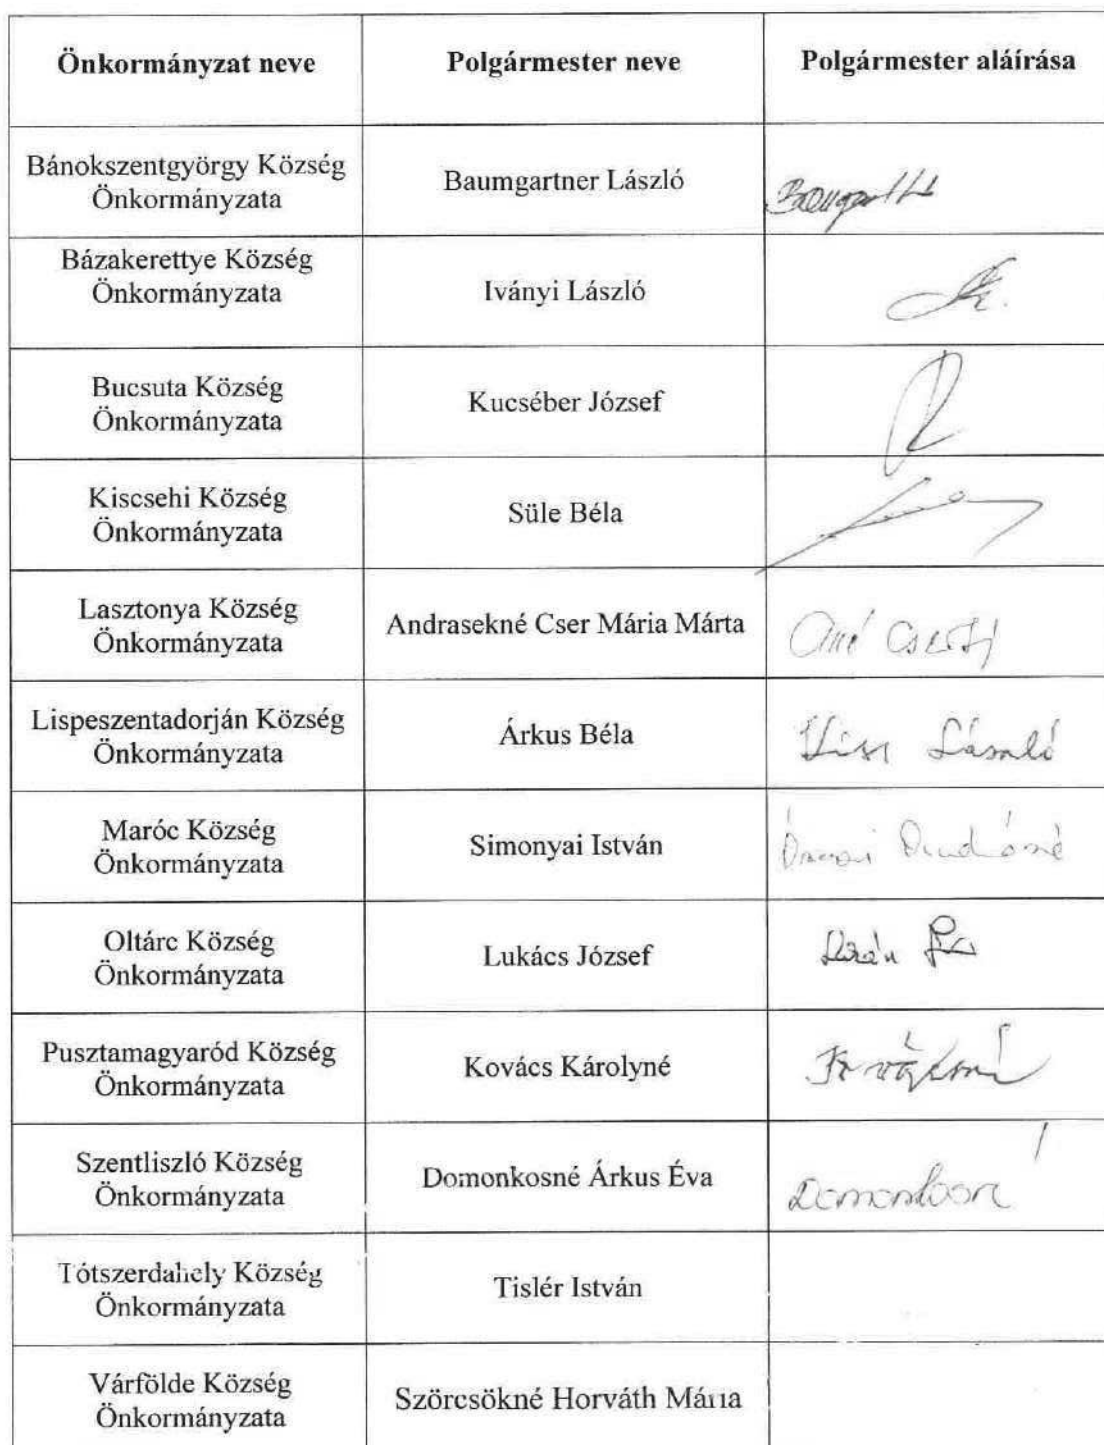 Önkormányzat neve
Polgármester neve
Polgármester aláírása
Bánokszentgyörgy Község
Önkormányzata
Baumgartner László
Bázakerettye Község
Önkormányzata
Iványi László
Bucsuta Község
Önkormányzata
Kucséber József
Kiscsehi Község
Önkormányzata
Süle Béla
Lasztonya Község
Önkormányzata
Andrasekné Cser Mária Márta
Lispeszentadorján Község
Önkormányzata
Árkus Béla
Kiss László
Maróc Község
Önkormányzata
Simonyai István
Oltárc Község
Önkormányzata
Lukács József
Pusztamagyaród Község
Önkormányzata
Kovács Károlyné
Szentliszló Község
Önkormányzata
Domonkosné Árkus Éva
Tótszerdahely Község
Önkormányzata
Tislér István
Várfölde Község
Önkormányzata
Szörcsökné Horváth Mária